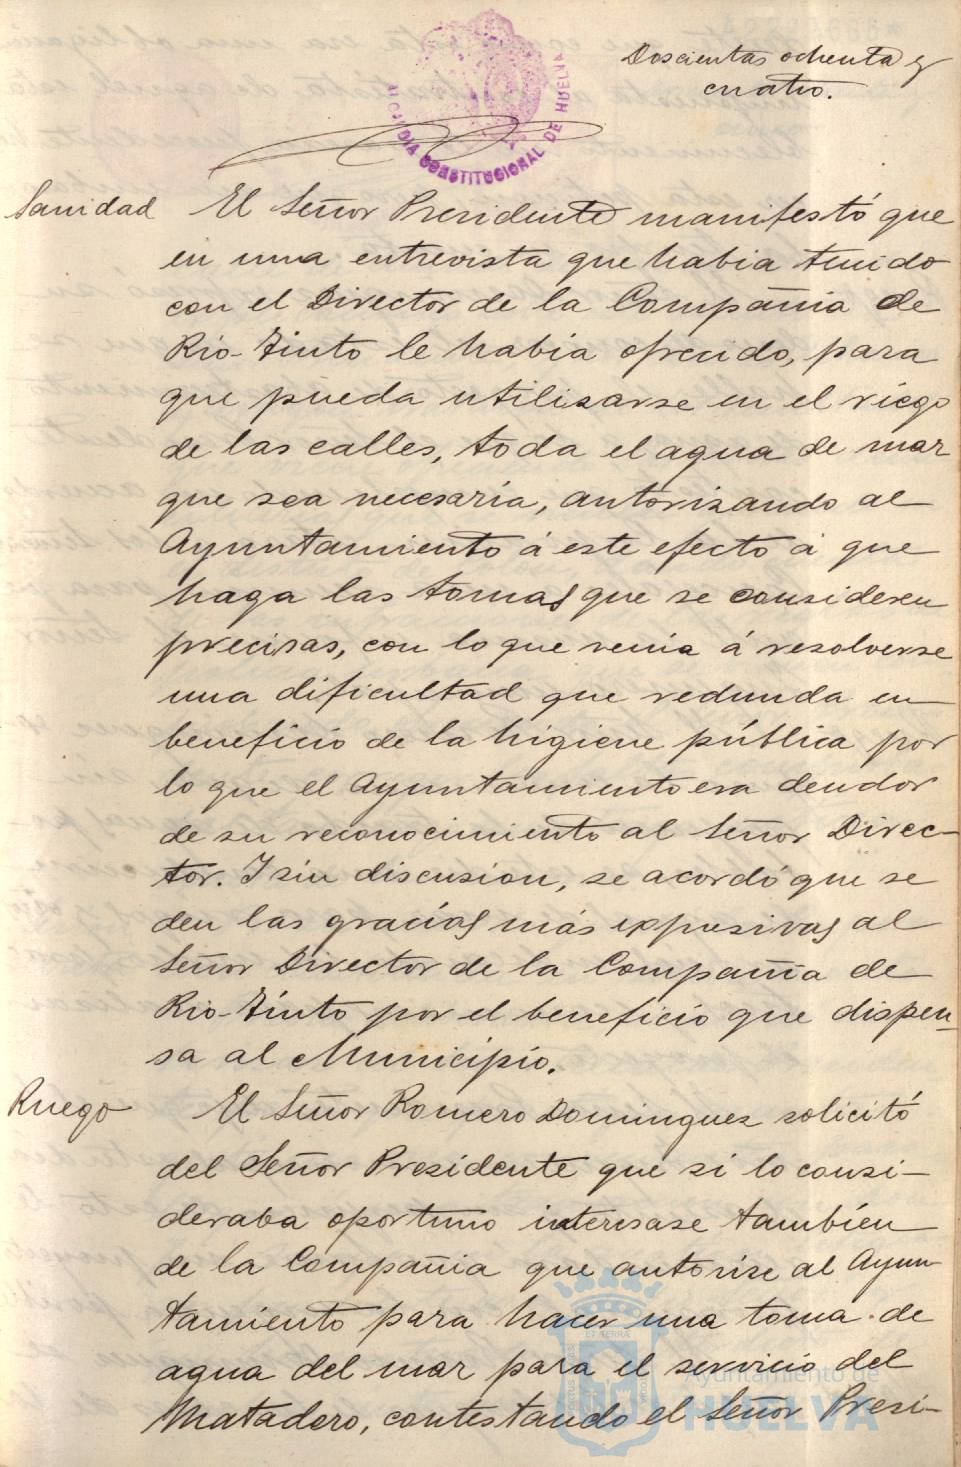 Doscientas ochenta y
cuatro.
ALCALDIA CONSTITUCIONAL DE HUELVA
Sanidad El Señor Presidente manifestó que
en una entrevista que habia tenido
con el Director de la Compañia de
Rio-Tinto le habia ofrecido, para
que pueda utilizarse en el riego
de las calles, toda el agua de mar
que sea necesaria, autorizando al
Ayuntamiento á este efecto á que
haga las tomas que se consideren
precisas, con lo que venia á resolverse
una dificultad que redunda en
beneficio de la higiene pública por
lo que el Ayuntamiento era deudor
de su reconocimiento al Señor Direc-
tor. Y sin discusion, se acordó que se
den las gracias más expresivas al
Señor Director de la Compañia de
Rio-Tinto por el beneficio que dispen-
sa al Municipio.
Ruego El Señor Romero Dominguez solicitó
del Señor Presidente que si lo consi-
deraba oportuno interesase tambien
de la Compañia que autorise al Ayun-
tamiento para hacer una toma de
agua del mar para el servicio del
Matadero, contestando el Señor Presi-
Ayuntamiento de
HUELVA